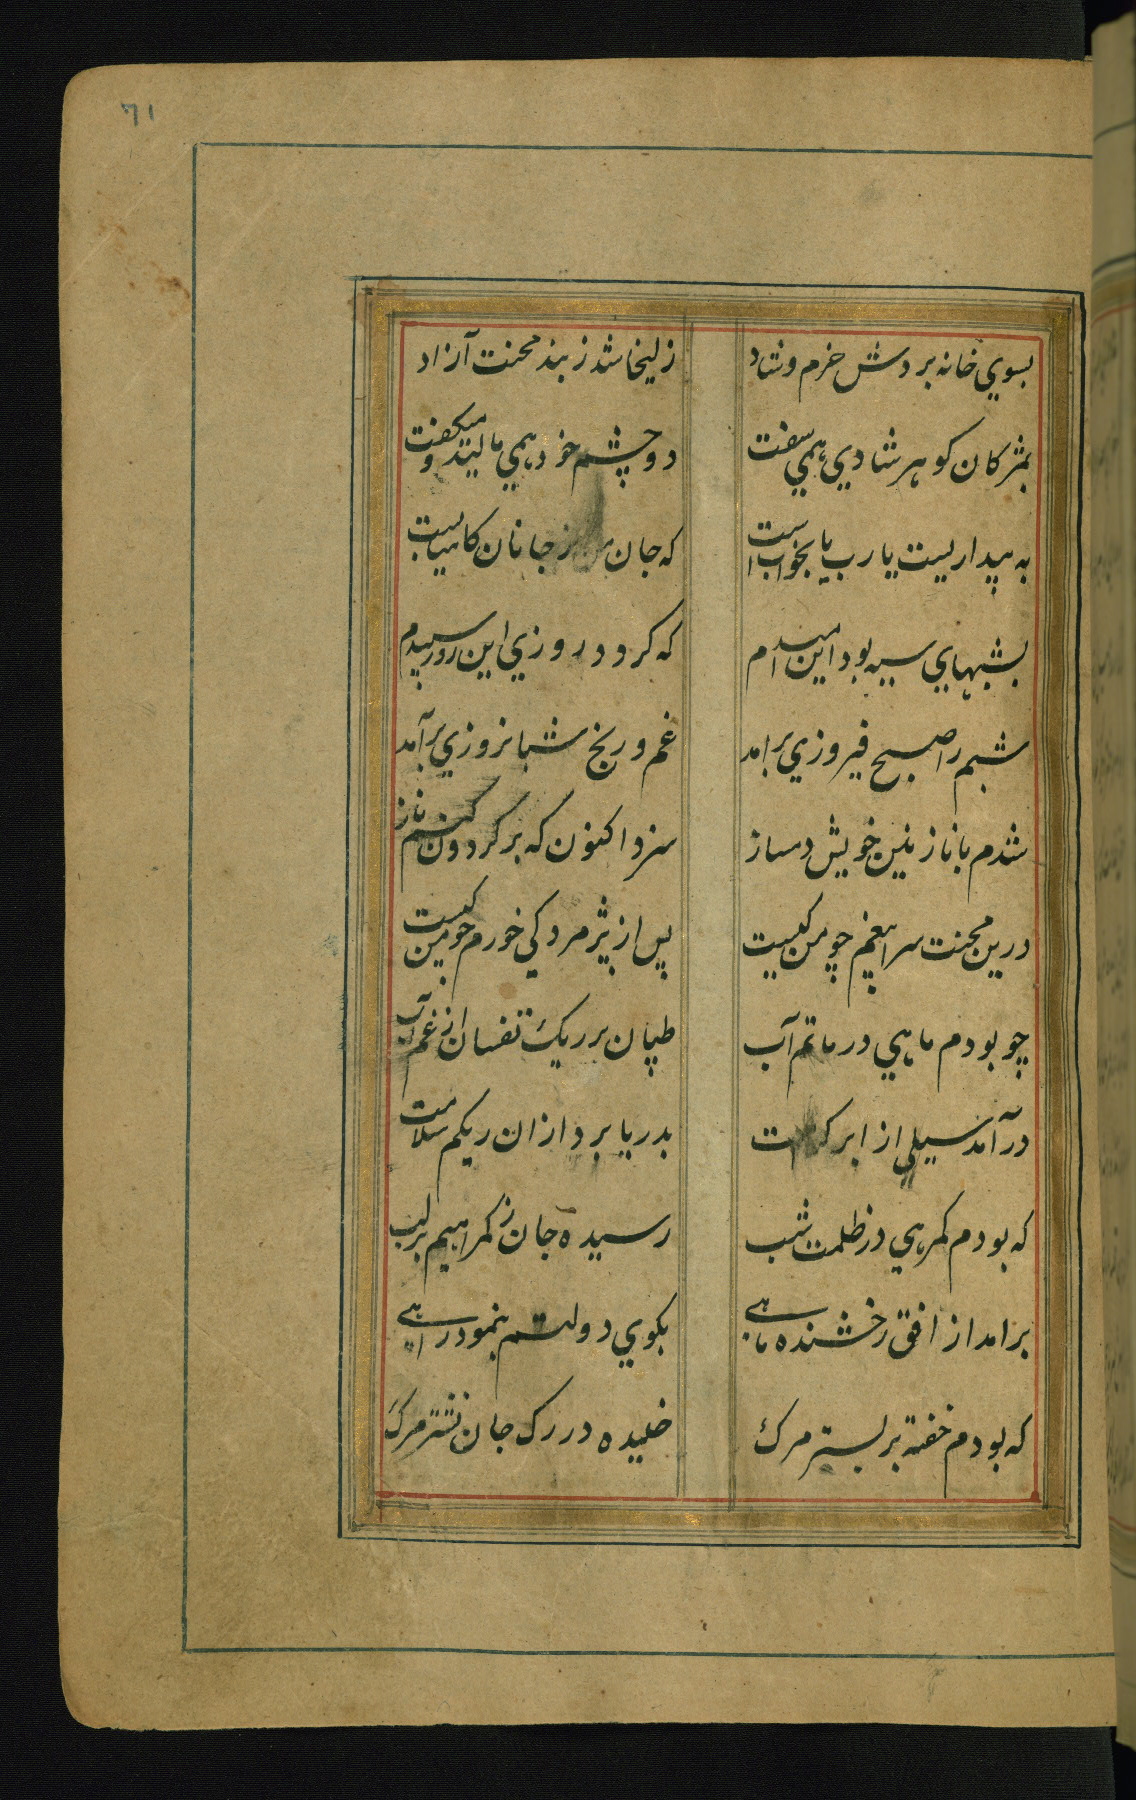 71
بسوي خانه بردش خرم و شاد زليخا شد ز بند محنت آزاد
بمژكان كوهر شادي همي سفت دو چشم خود همي ماليد و ميكفت
به بيداريست يا رب يا بخوابست كه جان من ز جانان كاميابست
بشبهاي سيه بود اين اميدم كه كردد روزي اين روز سپيدم
شبم را صبح فيروزي برامد غم و رنج شبانروزي برآمد
شدم با نازنين خويش دمساز سزد اكنون كه بر كردون كنم ناز
درين محنت سرا بيغم چو من كيست پس از پژمردكي خورم چو من كيست
چو بودم ماهي در ماتم آب طپان بر ريك تفسان از غم آب
درآمد سيلي از ابر كرامت بدريا برد ازان ريكم سلامت
كه بودم كمرهي در ظلمت شب رسيده جان ز كمراهيم بر لب
برامد از افق رخشنده ماهي بكوي دولتم بنمود راهي
كه بودم خفته بر بستر مرك خليده در رك جان نشتر مرك